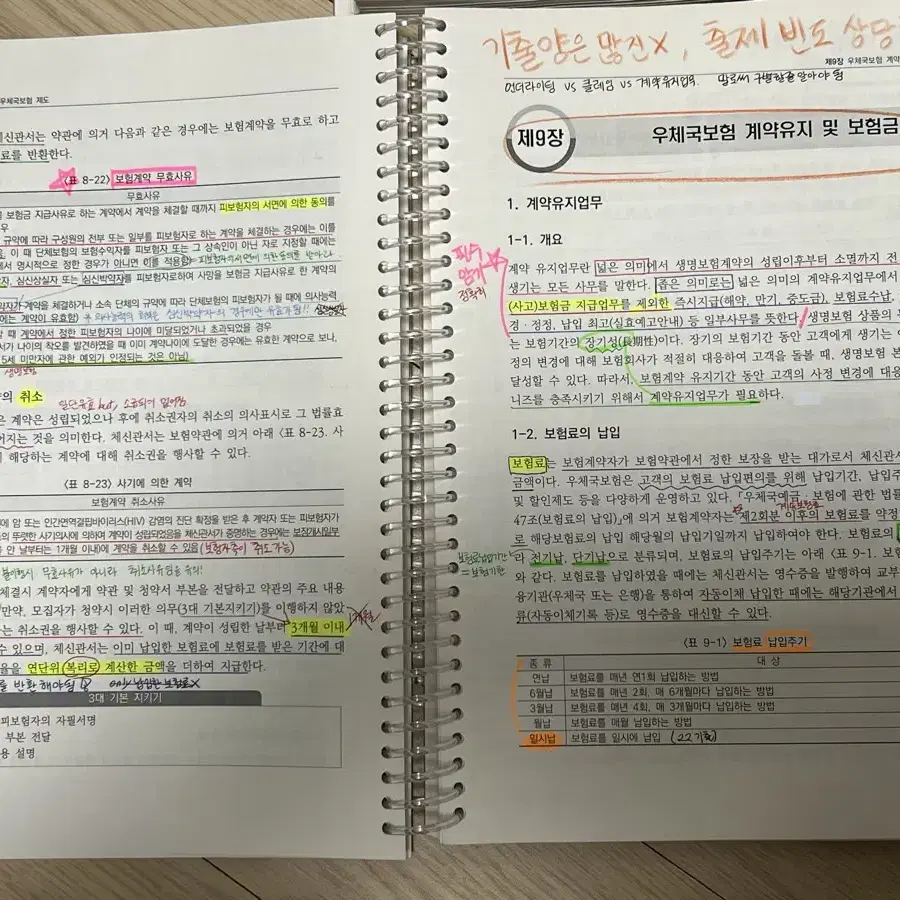 우체국보험 제도
체신관서는 약관에 의거 다음과 같은 경우에는 보험계약을 무효로 하고
료를 반환한다.
〈표 8-22〉 보험계약 무효사유
무효사유
보험금 지급사유로 하는 계약에서 계약을 체결할 때까지 피보험자의 서면에 의한 동의를
우
규약에 따라 구성원의 전부 또는 일부를 피보험자로 하는 계약을 체결하는 경우에는 이를
이 때 단체보험의 보험수익자를 피보험자 또는 그 상속인이 아닌 자로 지정할 때에는
에서 명시적으로 정한 경우가 아니면 이를 적용함
자, 심신상실자 또는 심신박약자를 피보험자로하여 사망을 보험금 지급사유로 한 계약의
약자가 계약을 체결하거나 소속 단체의 규약에 따라 단체보험의 피보험자가 될 때에 의사능력
에는 계약이 유효함)
할 때 계약에서 정한 피보험자의 나이에 미달되었거나 초과되었을 경우
서가 나이의 착오를 발견하였을 때 이미 계약나이에 도달한 경우에는 유효한 계약으로 보나,
5세 미만자에 관한 예외가 인정되는 것은 아님)
생명보험
의 취소
일단유효 but, 소급되어 없어짐
은 계약은 성립되었으나 후에 취소권자의 취소의 의사표시로 그 법률효
어지는 것을 의미한다. 체신관서는 보험약관에 의거 아래 〈표 8-23. 사
해당하는 계약에 대해 취소권을 행사할 수 있다.
〈표 8-23〉 사기에 의한 계약
보험계약 취소사유
에 암 또는 인간면역결핍바이러스(HIV) 감염의 진단 확정을 받은 후 계약자 또는 피보험자가
등의 뚜렷한 사기의사에 의하여 계약이 성립되었음을 체신관서가 증명하는 경우에는 보장개시일부
안 날부터는 1개월 이내)에 계약을 취소할 수 있음 (보험자측이 취소가능)
무효사유가 아니라 취소사유임을 유의!
체결시 계약자에게 약관 및 청약서 부본을 전달하고 약관의 주요 내용
만약, 모집자가 청약시 이러한 의무(3대 기본지키기)를 이행하지 않았
는 취소권을 행사할 수 있다. 이 때, 계약이 성립한 날부터 3개월 이내
수 있으며, 체신관서는 이미 납입한 보험료에 보험료를 받은 기간에 대
율을 연단위 복리로 계산한 금액을 더하여 지급한다.
를 반환해야됨 이미 납입한 보험료X
3대 기본 지키기
피보험자의 자필서명
부본 전달
용 설명
기출양은 많진X, 출제 빈도 상당
제9장 우체국보험 계약
언더라이팅 vs 클레임 vs 계약유지업무
제9장 우체국보험 계약유지 및 보험금
1. 계약유지업무
1-1. 개요
필수
암기
계약 유지업무란 넓은 의미에서 생명보험계약의 성립이후부터 소멸까지 전
생기는 모든 사무를 말한다. 좁은 의미로는 넓은 의미의 계약유지업무에서
(사고)보험금 지급업무를 제외한 즉시지급(해약, 만기, 중도금), 보험료수납,
경·정정, 납입 최고(실효예고안내) 등 일부사무를 뜻한다. 생명보험 상품의
는 보험기간의 장기성(長期性)이다. 장기의 보험기간 동안 고객에게 생기는
정의 변경에 대해 보험회사가 적절히 대응하여 고객을 돌볼 때, 생명보험 본
달성할 수 있다. 따라서, 보험계약 유지기간 동안 고객의 사정 변경에 대응
니즈를 충족시키기 위해서 계약유지업무가 필요하다.
1-2. 보험료의 납입
보험료는 보험계약자가 보험약관에서 정한 보장을 받는 대가로서 체신관서
금액이다. 우체국보험은 고객의 보험료 납입편의를 위해 납입기간, 납입주
및 할인제도 등을 다양하게 운영하고 있다. 「우체국예금·보험에 관한 법률
계속보험료
47조(보험료의 납입)」에 의거 보험계약자는 제2회분 이후의 보험료를 약정
로 해당보험료의 납입 해당월의 납입기일까지 납입하여야 한다. 보험료의
보험료납입기간
= 보험기간
라 전기납, 단기납으로 분류되며, 보험료의 납입주기는 아래 〈표 9-1. 보험
와 같다. 보험료를 납입하였을 때에는 체신관서는 영수증을 발행하여 교부
융기관(우체국 또는 은행)을 통하여 자동이체 납입한 때에는 해당기관에서
류(자동이체기록 등)로 영수증을 대신할 수 있다.
〈표 9-1〉 보험료 납입주기
종 류 대 상
연납 보험료를 매년 연1회 납입하는 방법
6월납 보험료를 매년 2회, 매 6개월마다 납입하는 방법
3월납 보험료를 매년 4회, 매 3개월마다 납입하는 방법
월납 보험료를 매월 납입하는 방법
일시납 보험료를 일시에 납입 (22기출)